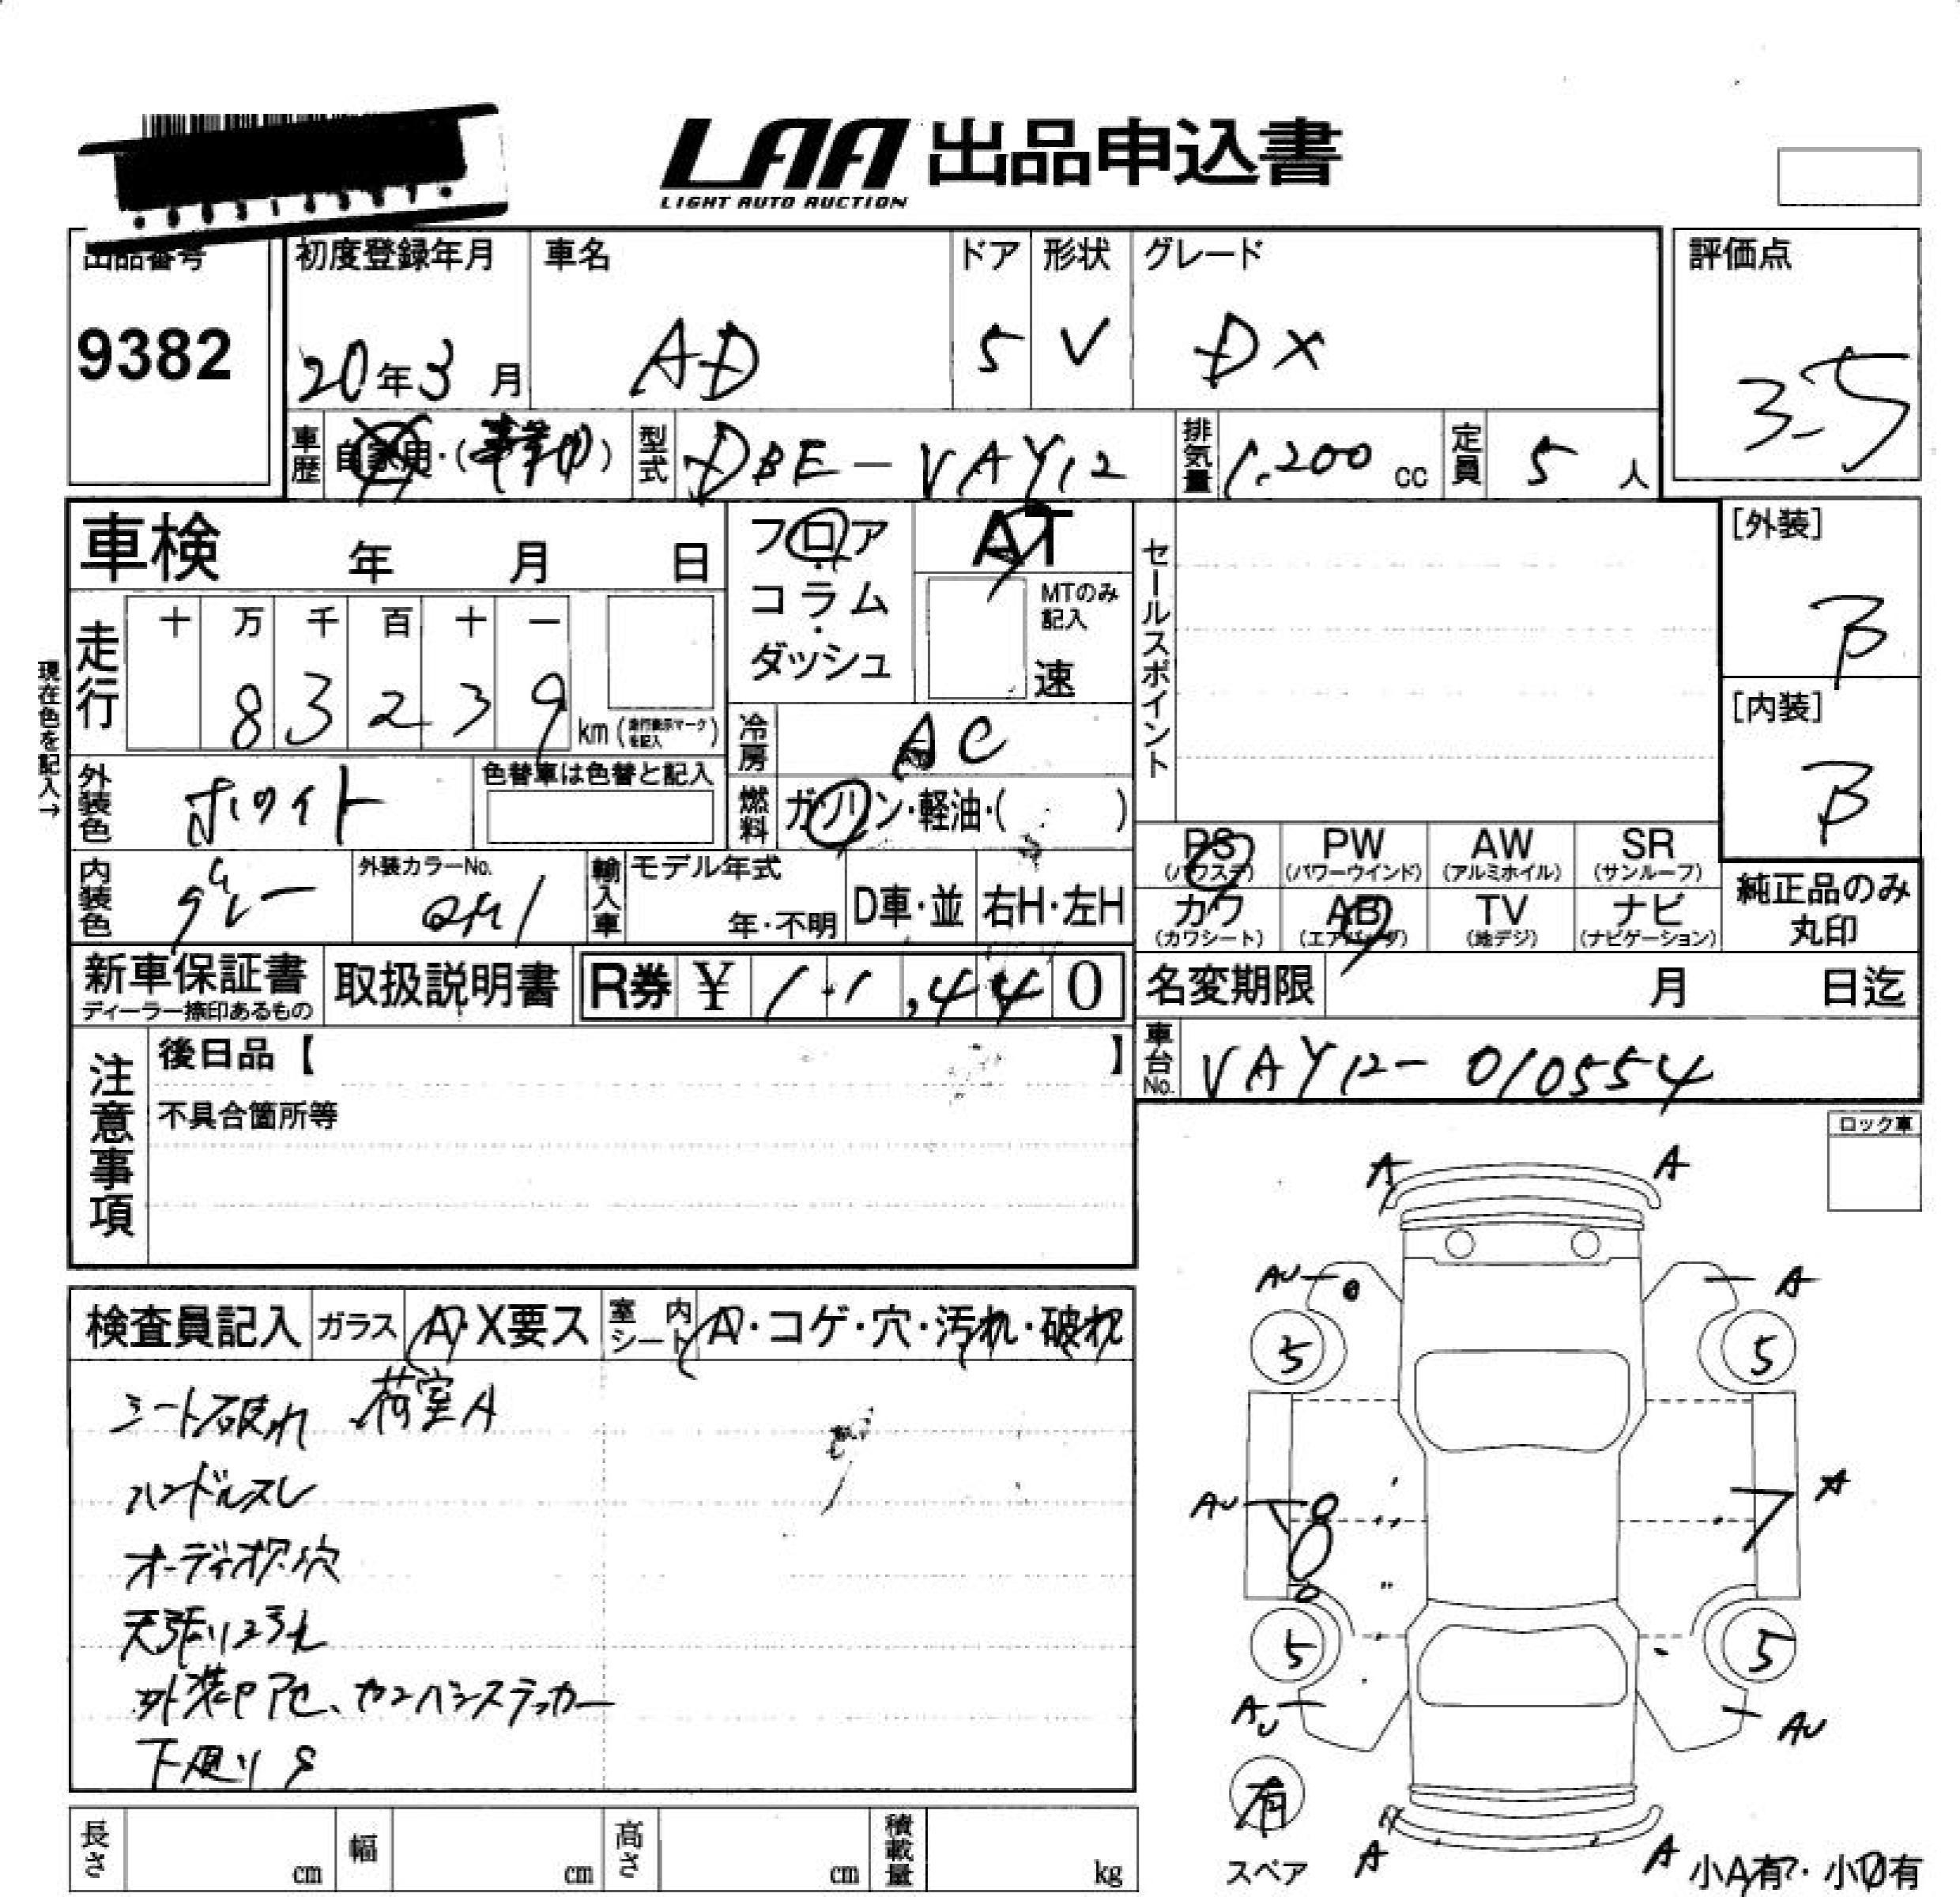 LAA 出品申込書
LIGHT AUTO AUCTION
出品番号
9382
初度登録年月
20年3月
車名
AD
ドア
5
形状
V
グレード
DX
評価点
3.5
車歴
自家用・( )
型式
DBE-VAY12
排気量
1,200cc
定員
5人
車検 年 月 日
フロア
コラム
ダッシュ
AT
MTのみ記入
速
セールスポイント
[外装]
B
[内装]
B
現在色を記入→
走行
十 万 千 百 十 一
8 3 2 3 9
km (走行表示マークを記入)
冷房
AC
外装色
ホワイト
色替車は色替と記入
燃料
ガソリン・軽油・( )
内装色
グレー
外装カラーNo.
QM1
輸入車
モデル年式
年・不明
D車・並
右H・左H
PS (パワステ)
PW (パワーウインド)
AW (アルミホイル)
SR (サンルーフ)
カワ (カワシート)
AB (エアバッグ)
TV (地デジ)
ナビ (ナビゲーション)
純正品のみ
丸印
新車保証書
ディーラー捺印あるもの
取扱説明書
R券 ¥ 11,440
名変期限 月 日迄
車台No.
VAY12-010554
注意事項
後日品【 】
不具合箇所等
ロック車
検査員記入
ガラス
A・X要ス
室内シート
A・コゲ・穴・汚れ・破れ
シート破れ 荷室A
ハンドルスレ
オーディオ穴
天張り汚れ
カンバンステッカー
下廻りS
A
A
AU
A
5
5
AU
8
7
A
5
5
AU
AU
有
スペア
A
A
小A有・小U有
長さ cm
幅 cm
高さ cm
積載量 kg